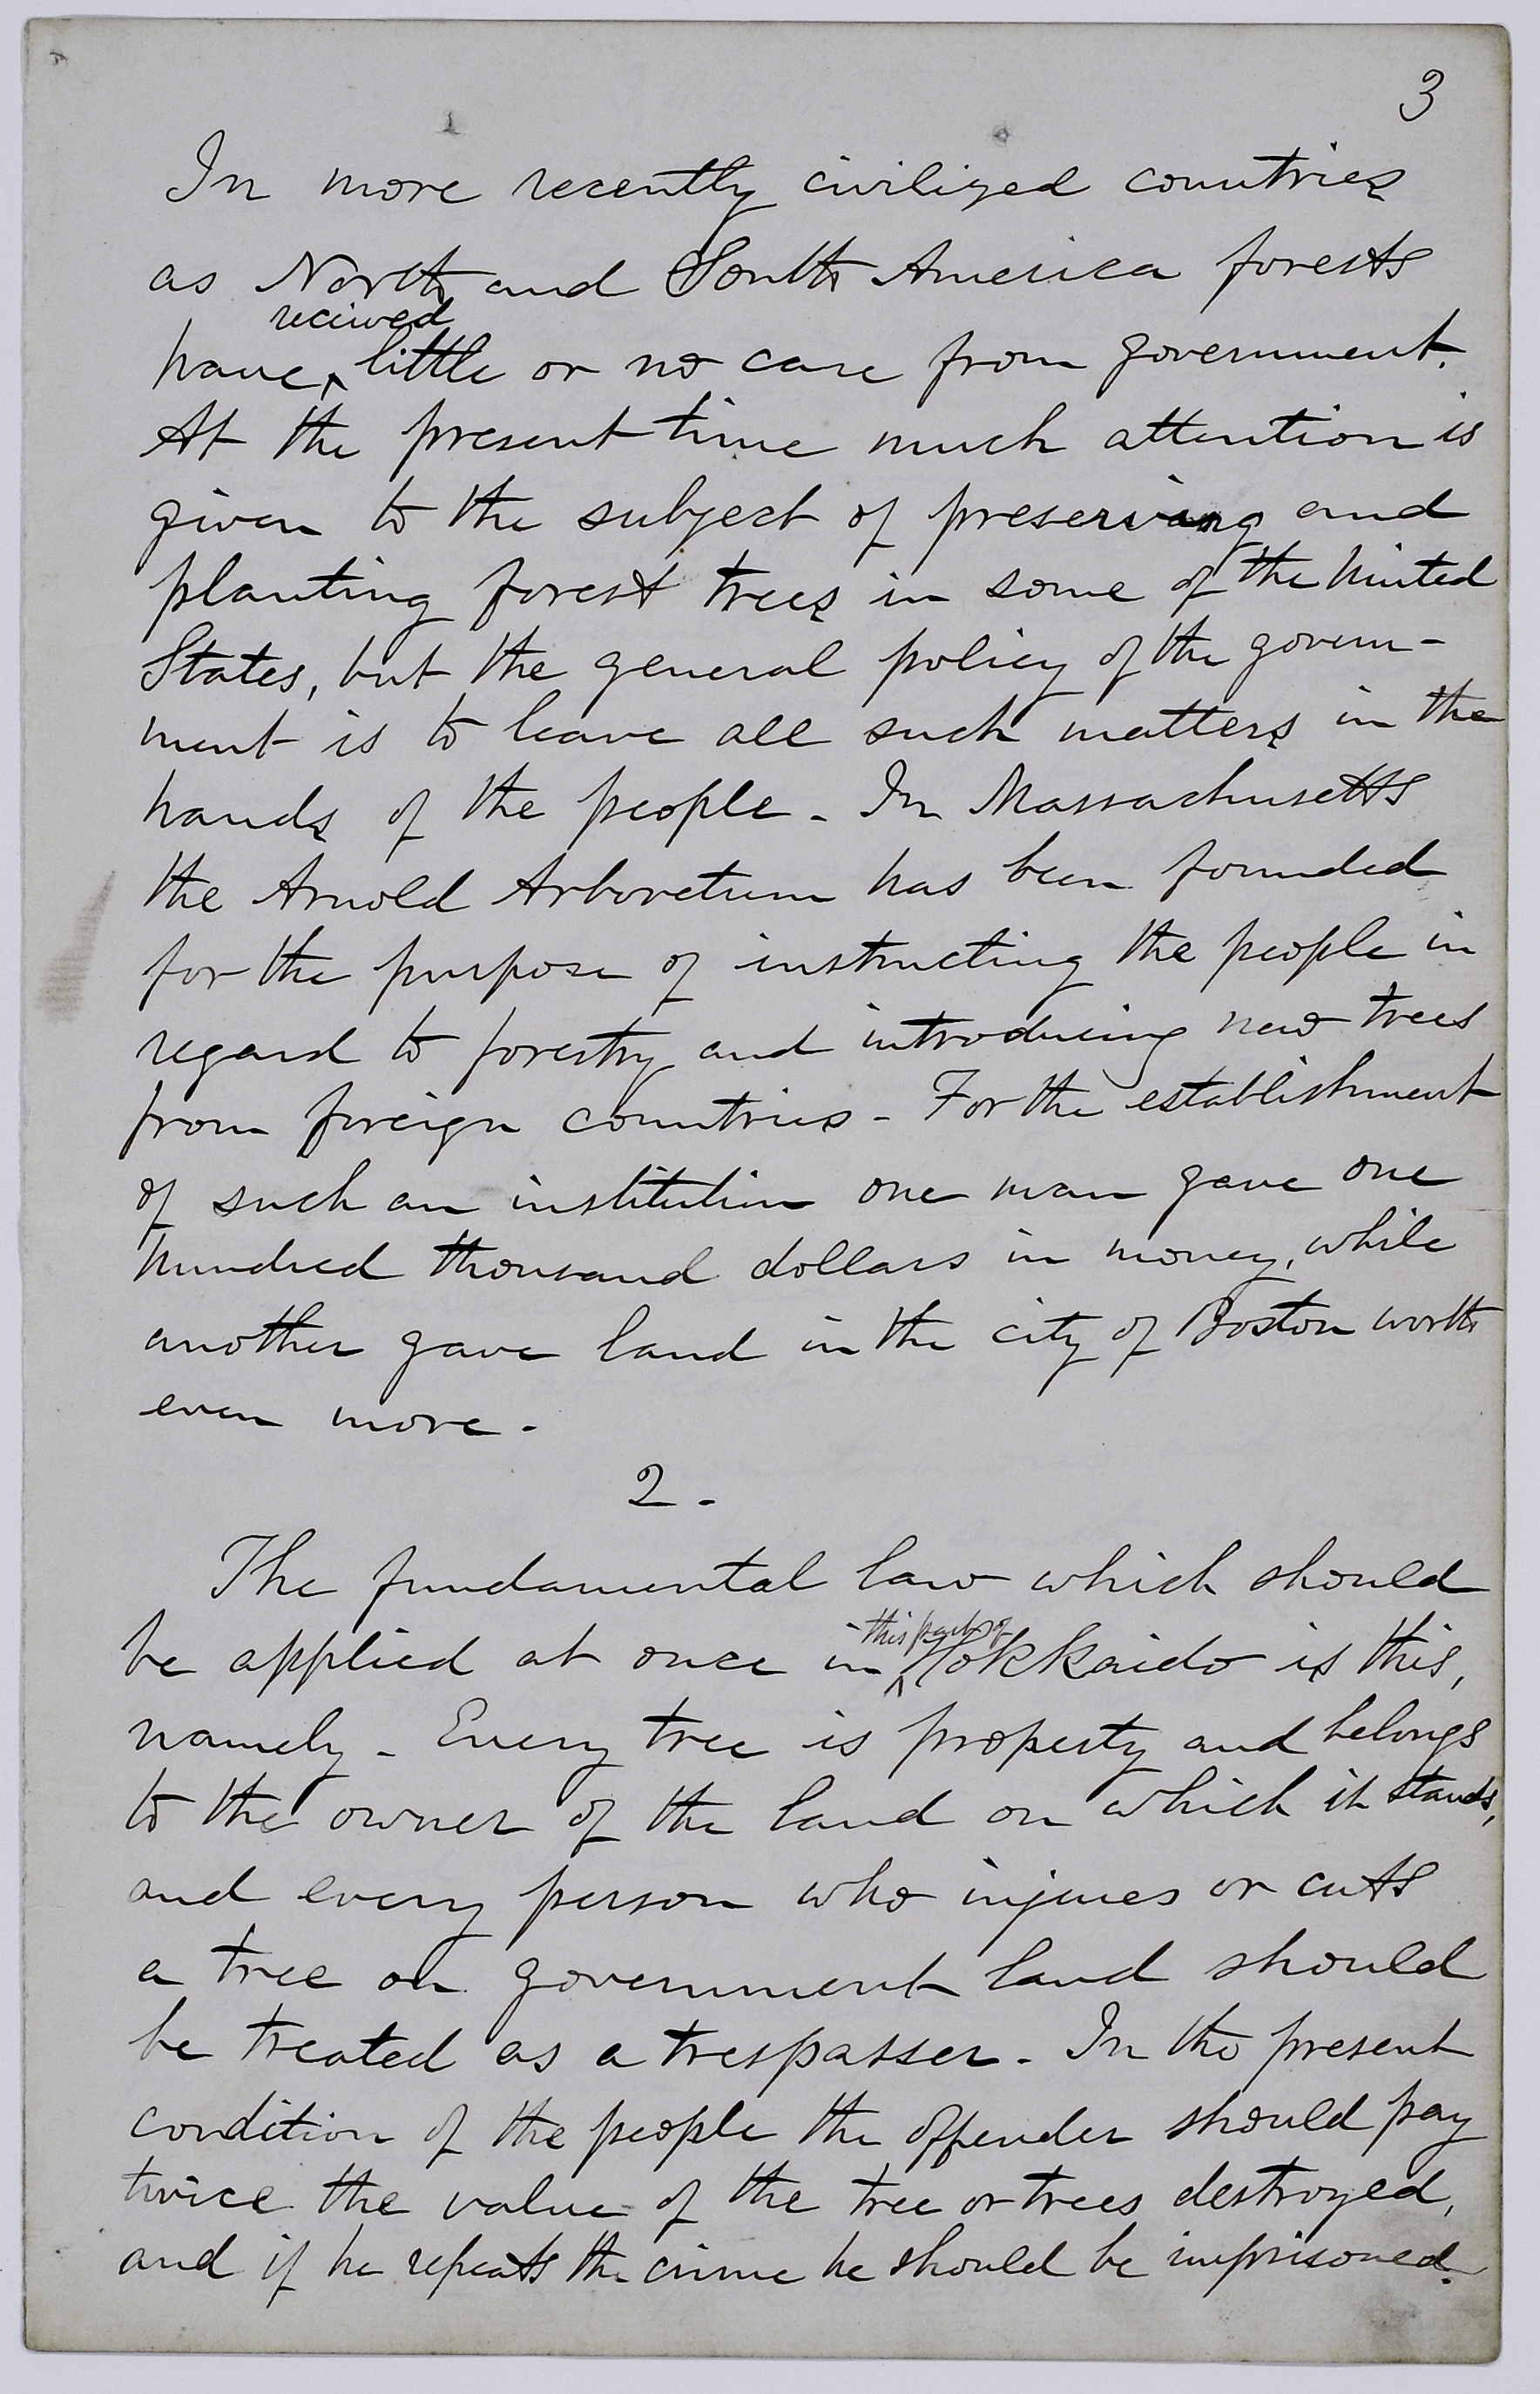 3
In more recently civilized countries
as North and South America forests
received
have ‸ little or no care from government.
At the present time much attention is
given to the subject of preserving and
planting forest trees in some of the United
States, but the general policy of the govern-
ment is to leave all such matters in the
hands of the people. In Massachusetts
the Arnold Arboretum has been founded
for the purpose of instructing the people in
regard to forestry and introducing new trees
from foreign countries. For the establishment
of such an institution one man gave one
hundred thousand dollars in money, while
another gave land in the city of Boston worth
even more.
2.
The fundamental law which should
this part of
be applied at once in ‸ Hokkaido is this,
namely. Every tree is property and belongs
to the owner of the land on which it stands,
and every person who injures or cuts
a tree on government land should
be treated as a trespasser. In the present
condition of the people the offender should pay
twice the value of the tree or trees destroyed,
and if he repeats the crime he should be imprisoned.